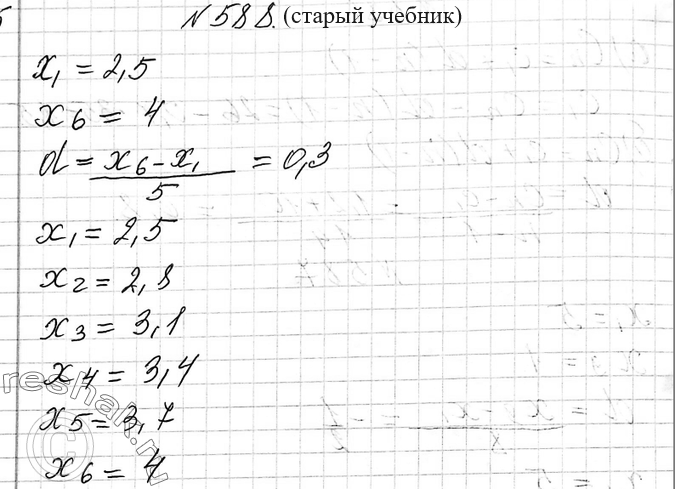 № 588. (старый учебник)
x₁ = 2,5
x₆ = 4
d = (x₆ - x₁)/5 = 0,3
x₁ = 2,5
x₂ = 2,8
x₃ = 3,1
x₄ = 3,4
x₅ = 3,7
x₆ = 4
reshak.ru